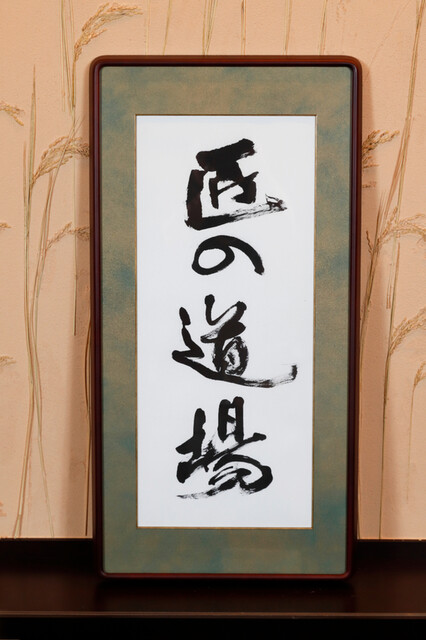 匠の道場